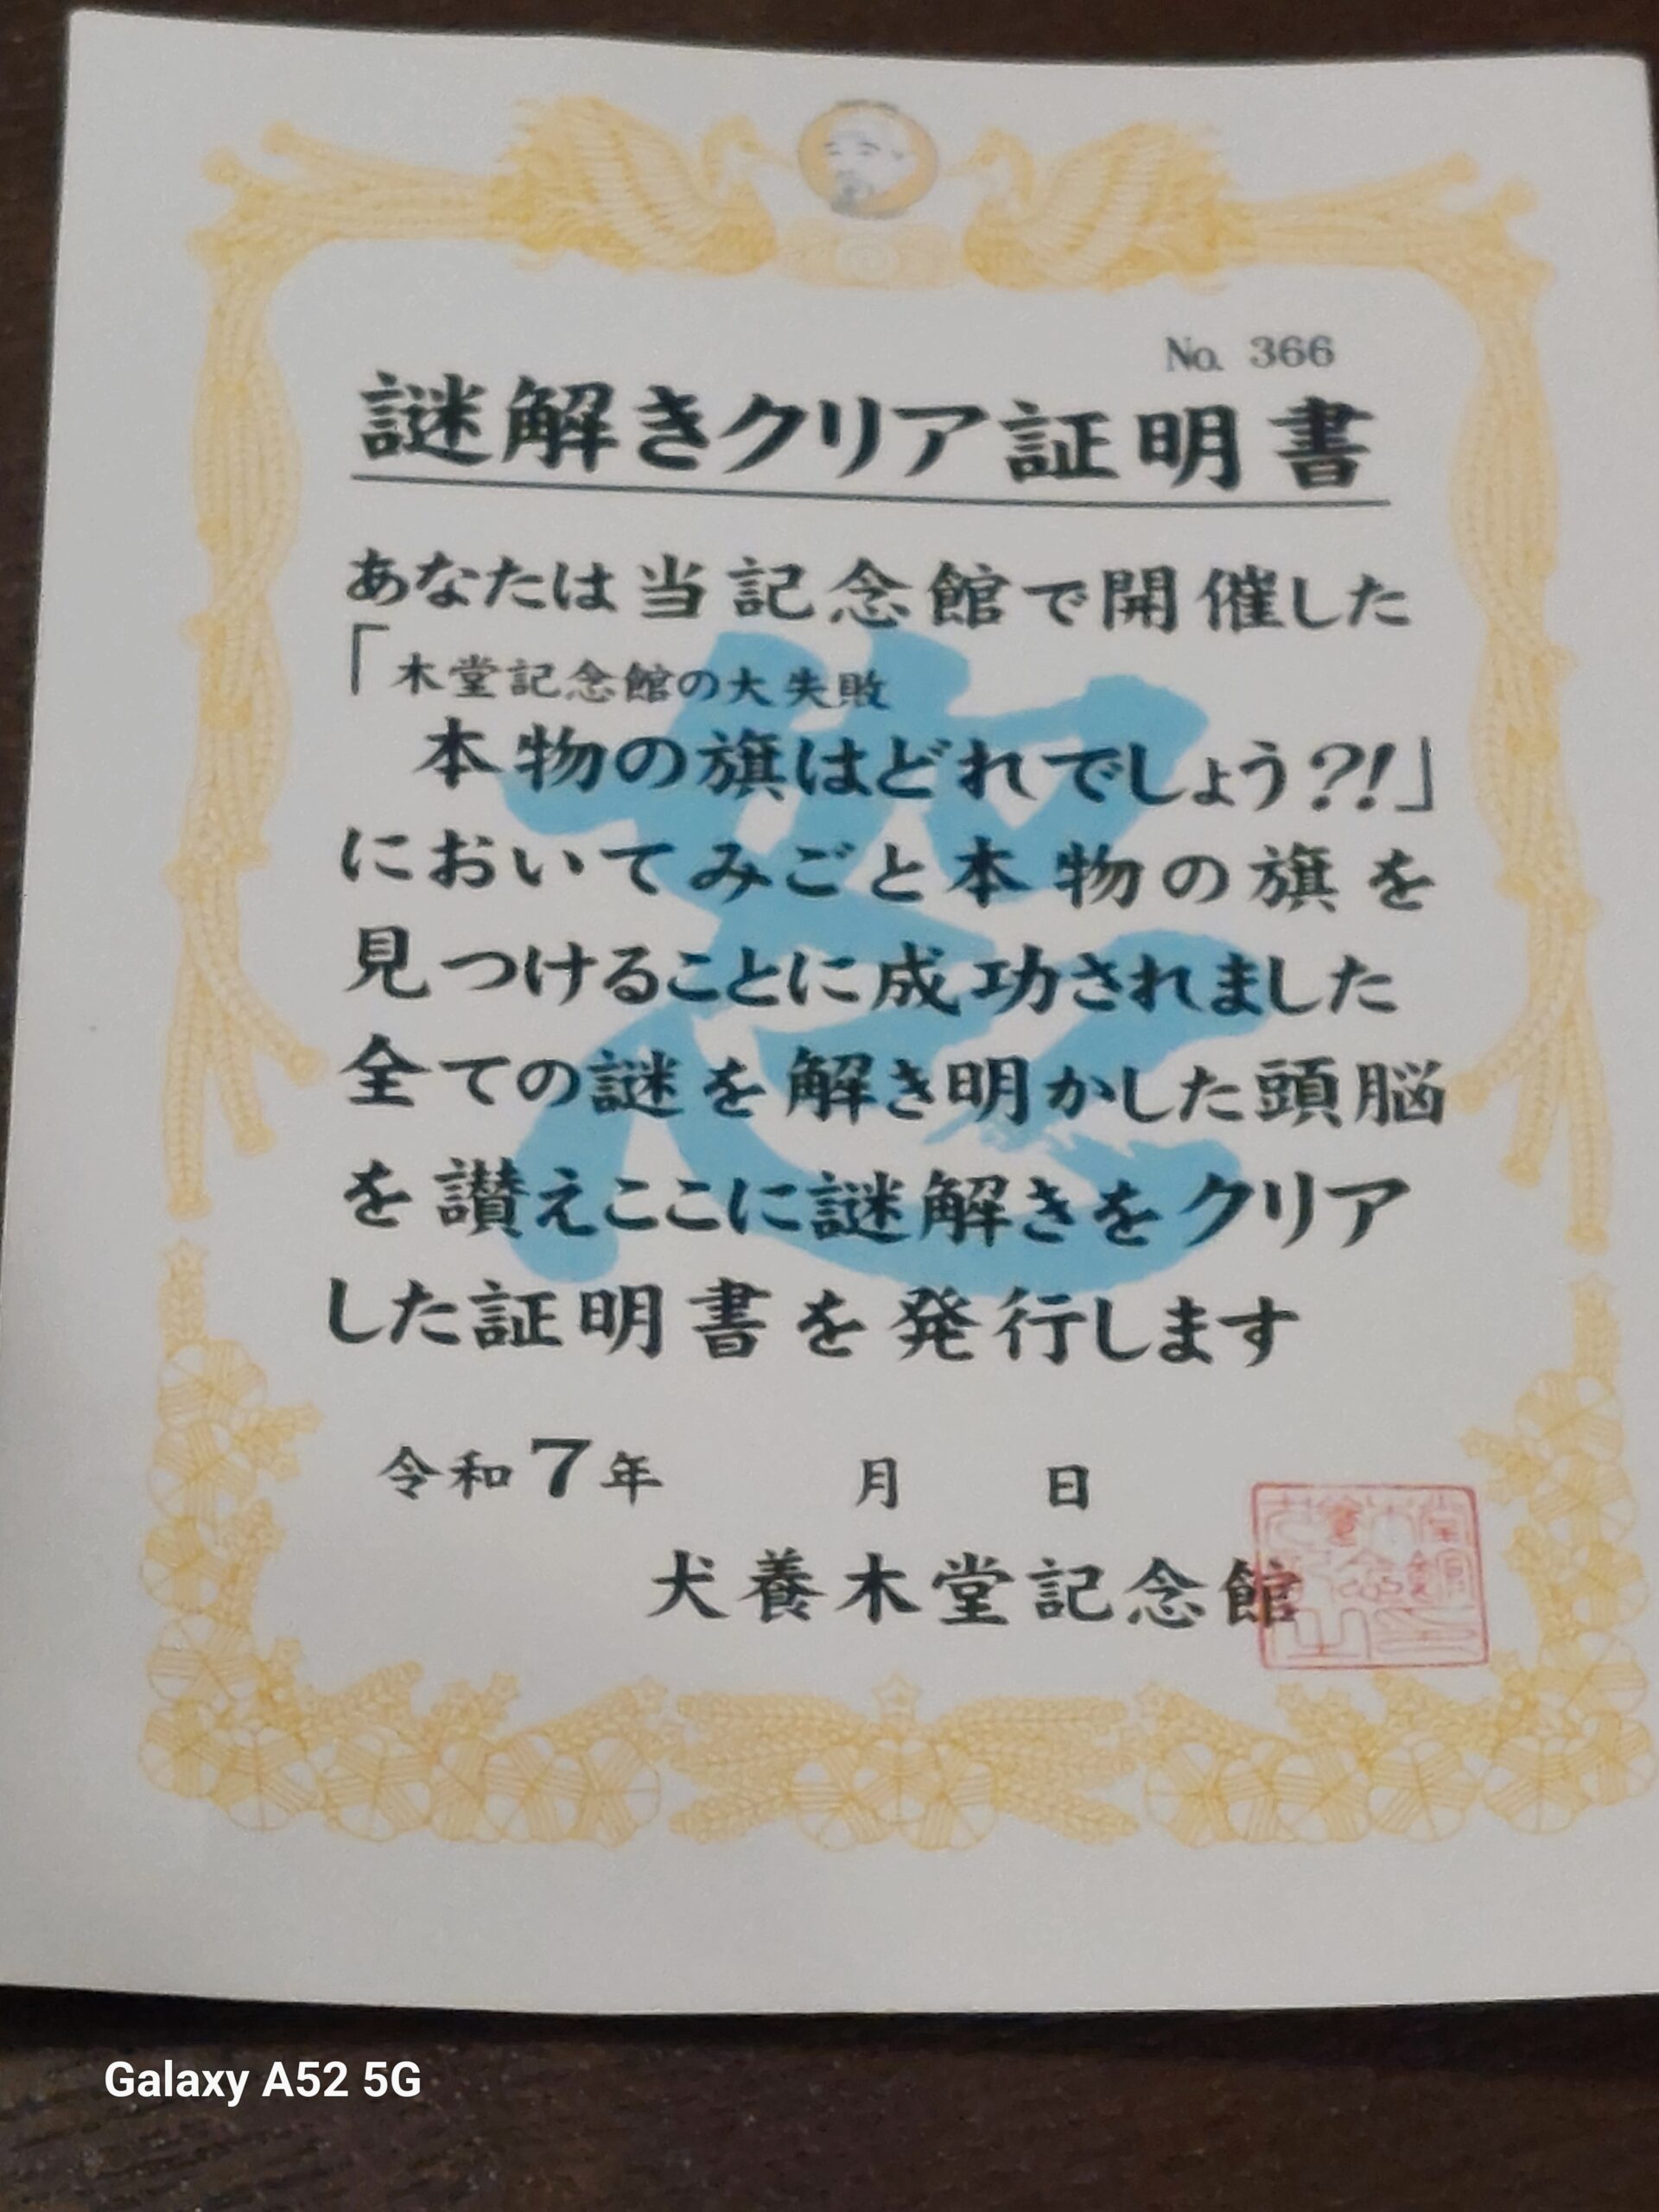 No. 366
謎解きクリア証明書
あなたは当記念館で開催した
「木堂記念館の大失敗
本物の旗はどれでしょう?!」
においてみごと本物の旗を
見つけることに成功されました
全ての謎を解き明かした頭脳
を讃えここに謎解きをクリア
した証明書を発行します
令和7年 月 日
犬養木堂記念館
Galaxy A52 5G